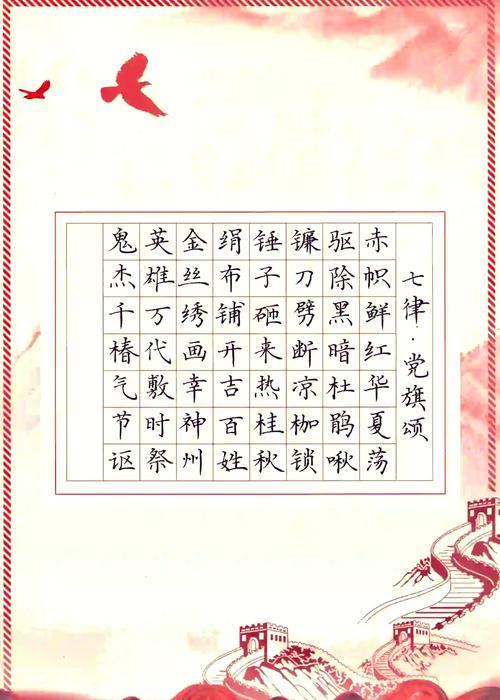 七律·党旗颂
赤帜鲜红华夏荡
驱除黑暗杜鹃啾
镰刀劈断凉枷锁
锤子砸来热桂秋
绢布铺开吉百姓
金丝绣画幸神州
英雄万代敷时祭
鬼杰千椿气节讴